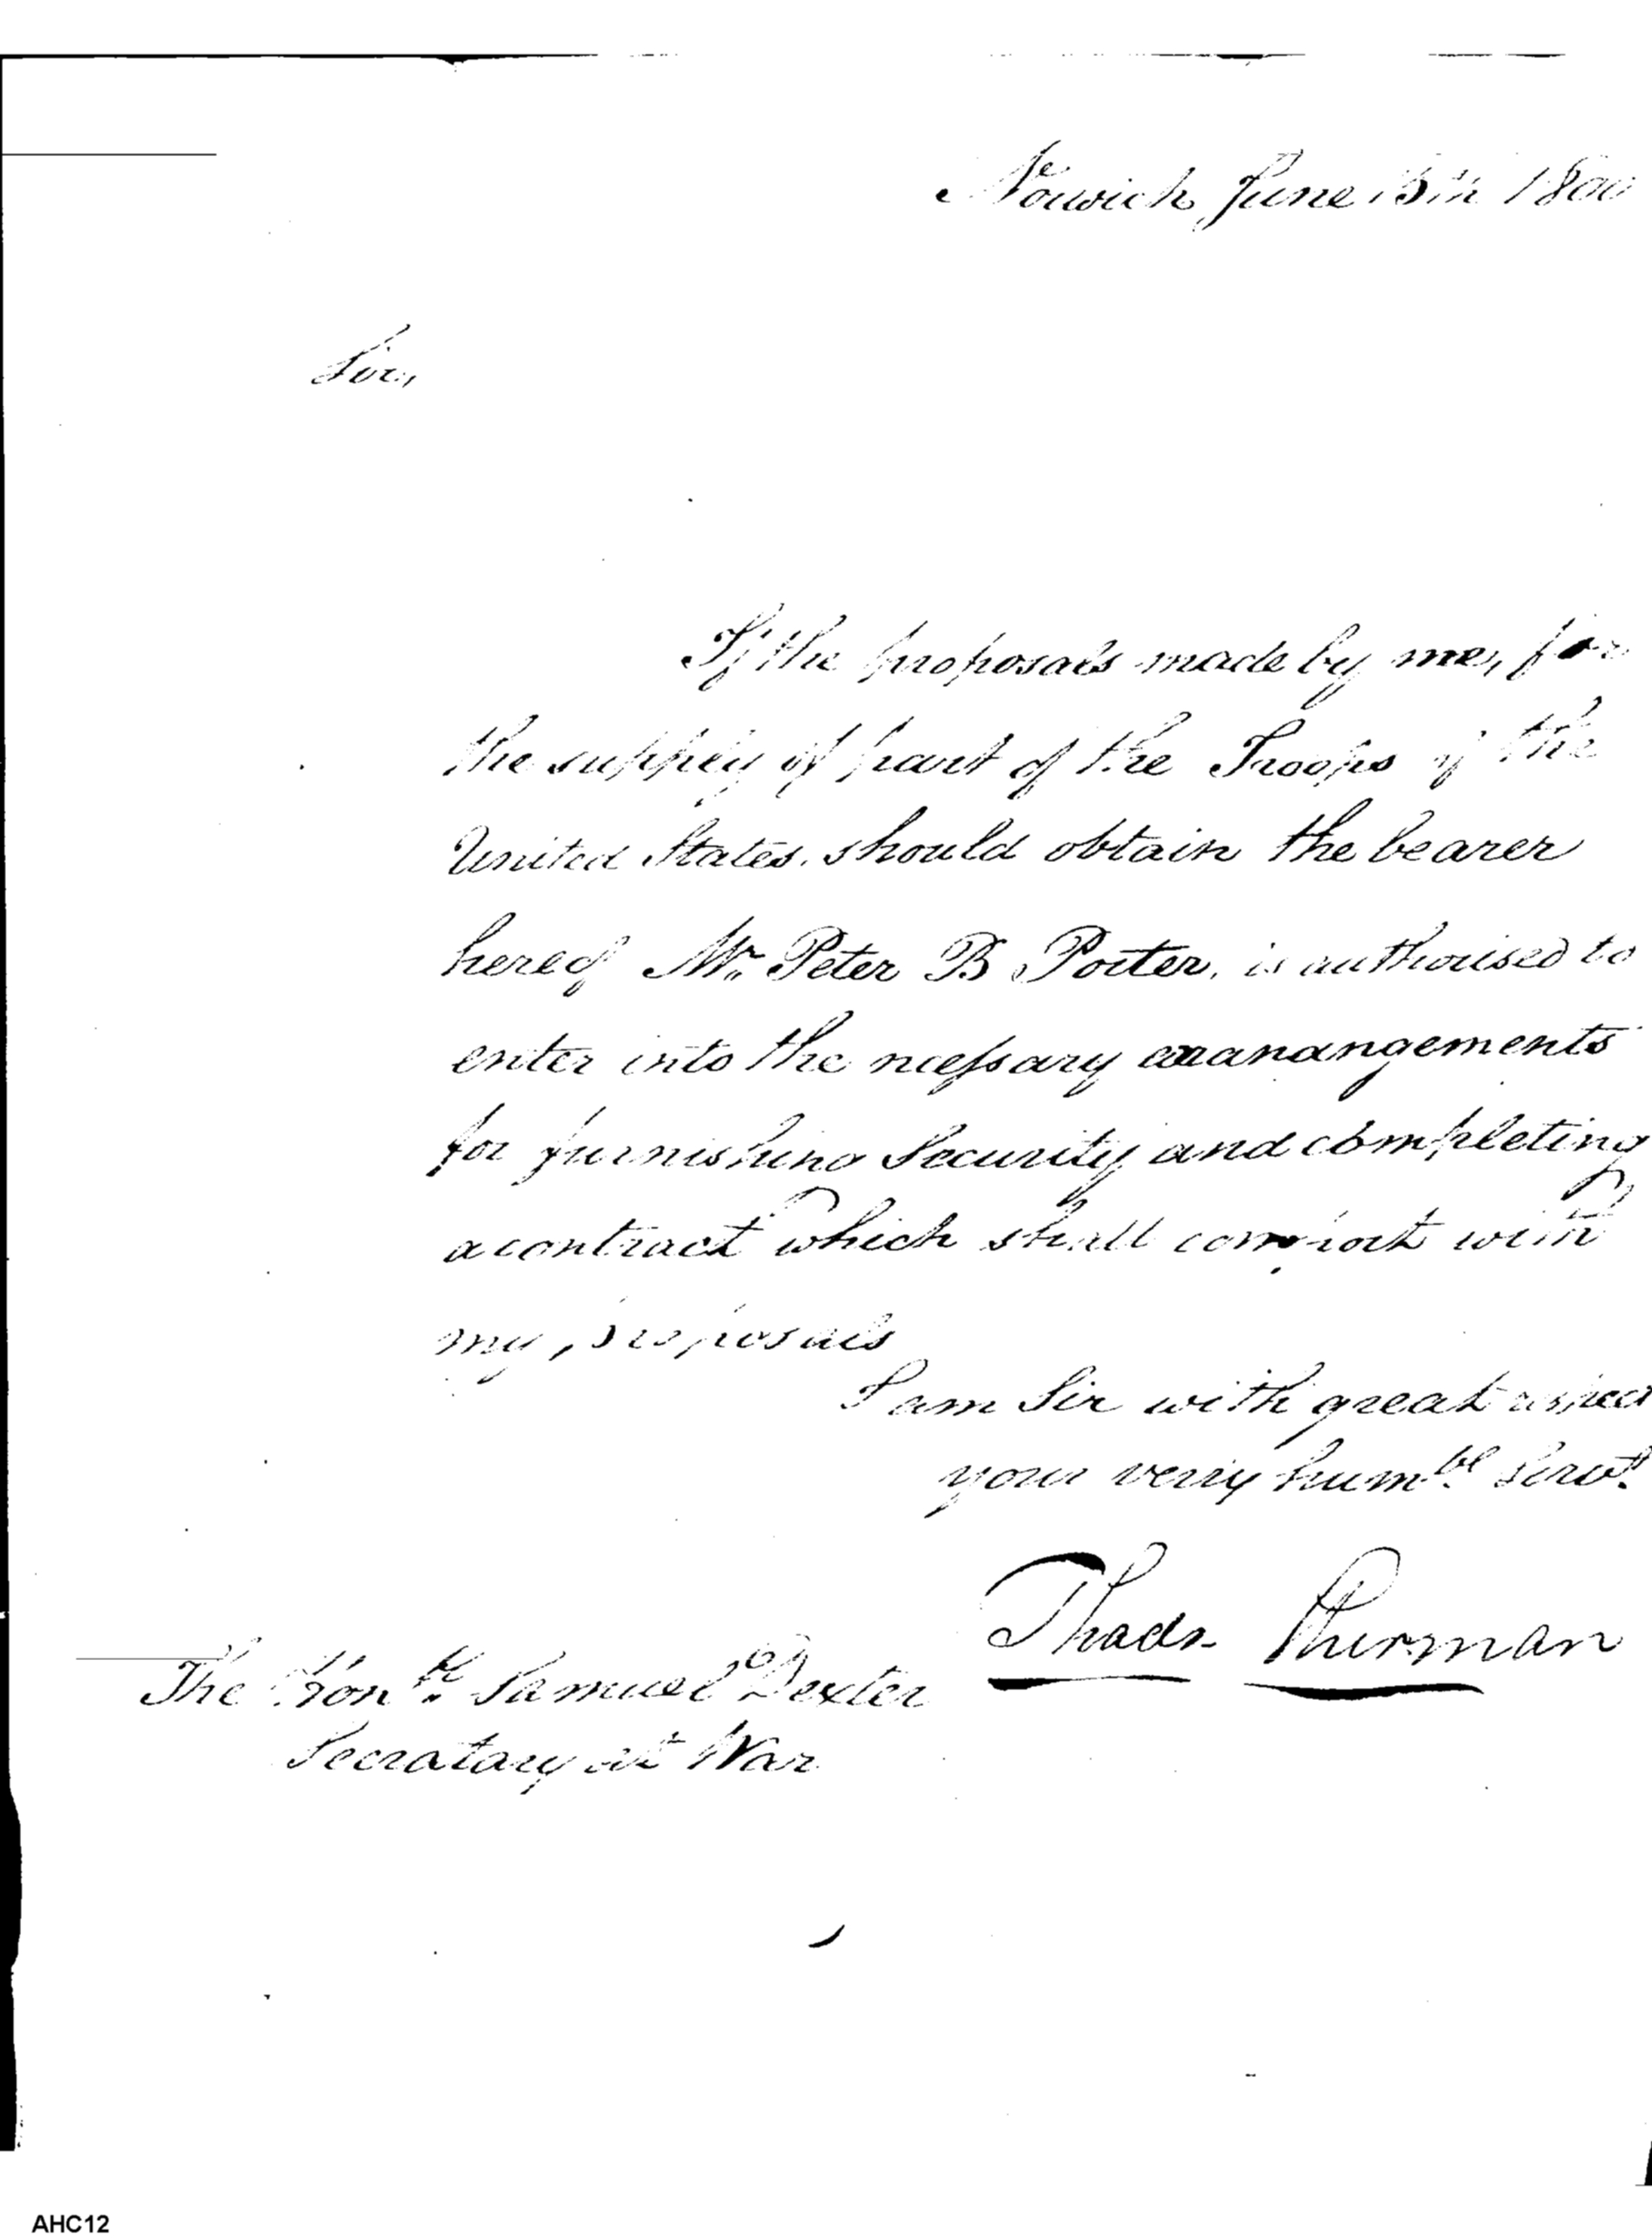 Norwich June 15th 1800
Sir,
If the proposals made by me, for
the supply of part of the Troops of the
United States, should obtain the bearer
hereof Mr. Peter B Porter, is authorised to
enter into the necessary arranangements
for furnishing Security and completing
a contract which shall comport with
my proposals
I am Sir with great respect
your verry humbl. Servt.
Thads
The Honbl. Samuel Dexter
Secratary at War
AHC12